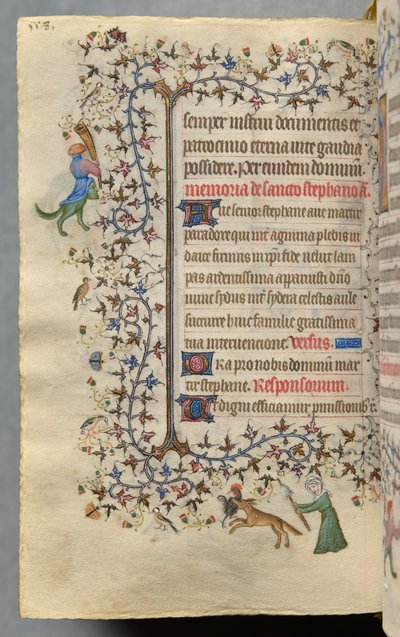 semper instrui documentis et
patrocinio eterna vite gaudia
possidere. Per eundem dominū
memoria de sancto stephano a.
Aue senior stephane aue martir
paradore qui int agmina plebis iu
daice firmus in xp̄i fide uelut lam
pas ardentissima apparuisti dn̄o
nunc sydus int sydera celestis aule
succurre huic familie gratissima
tua interuencione. Versus.
Ora pro nobis dominum mar
tir stephane. Responsorium.
Ut digni efficiamur pmissionib